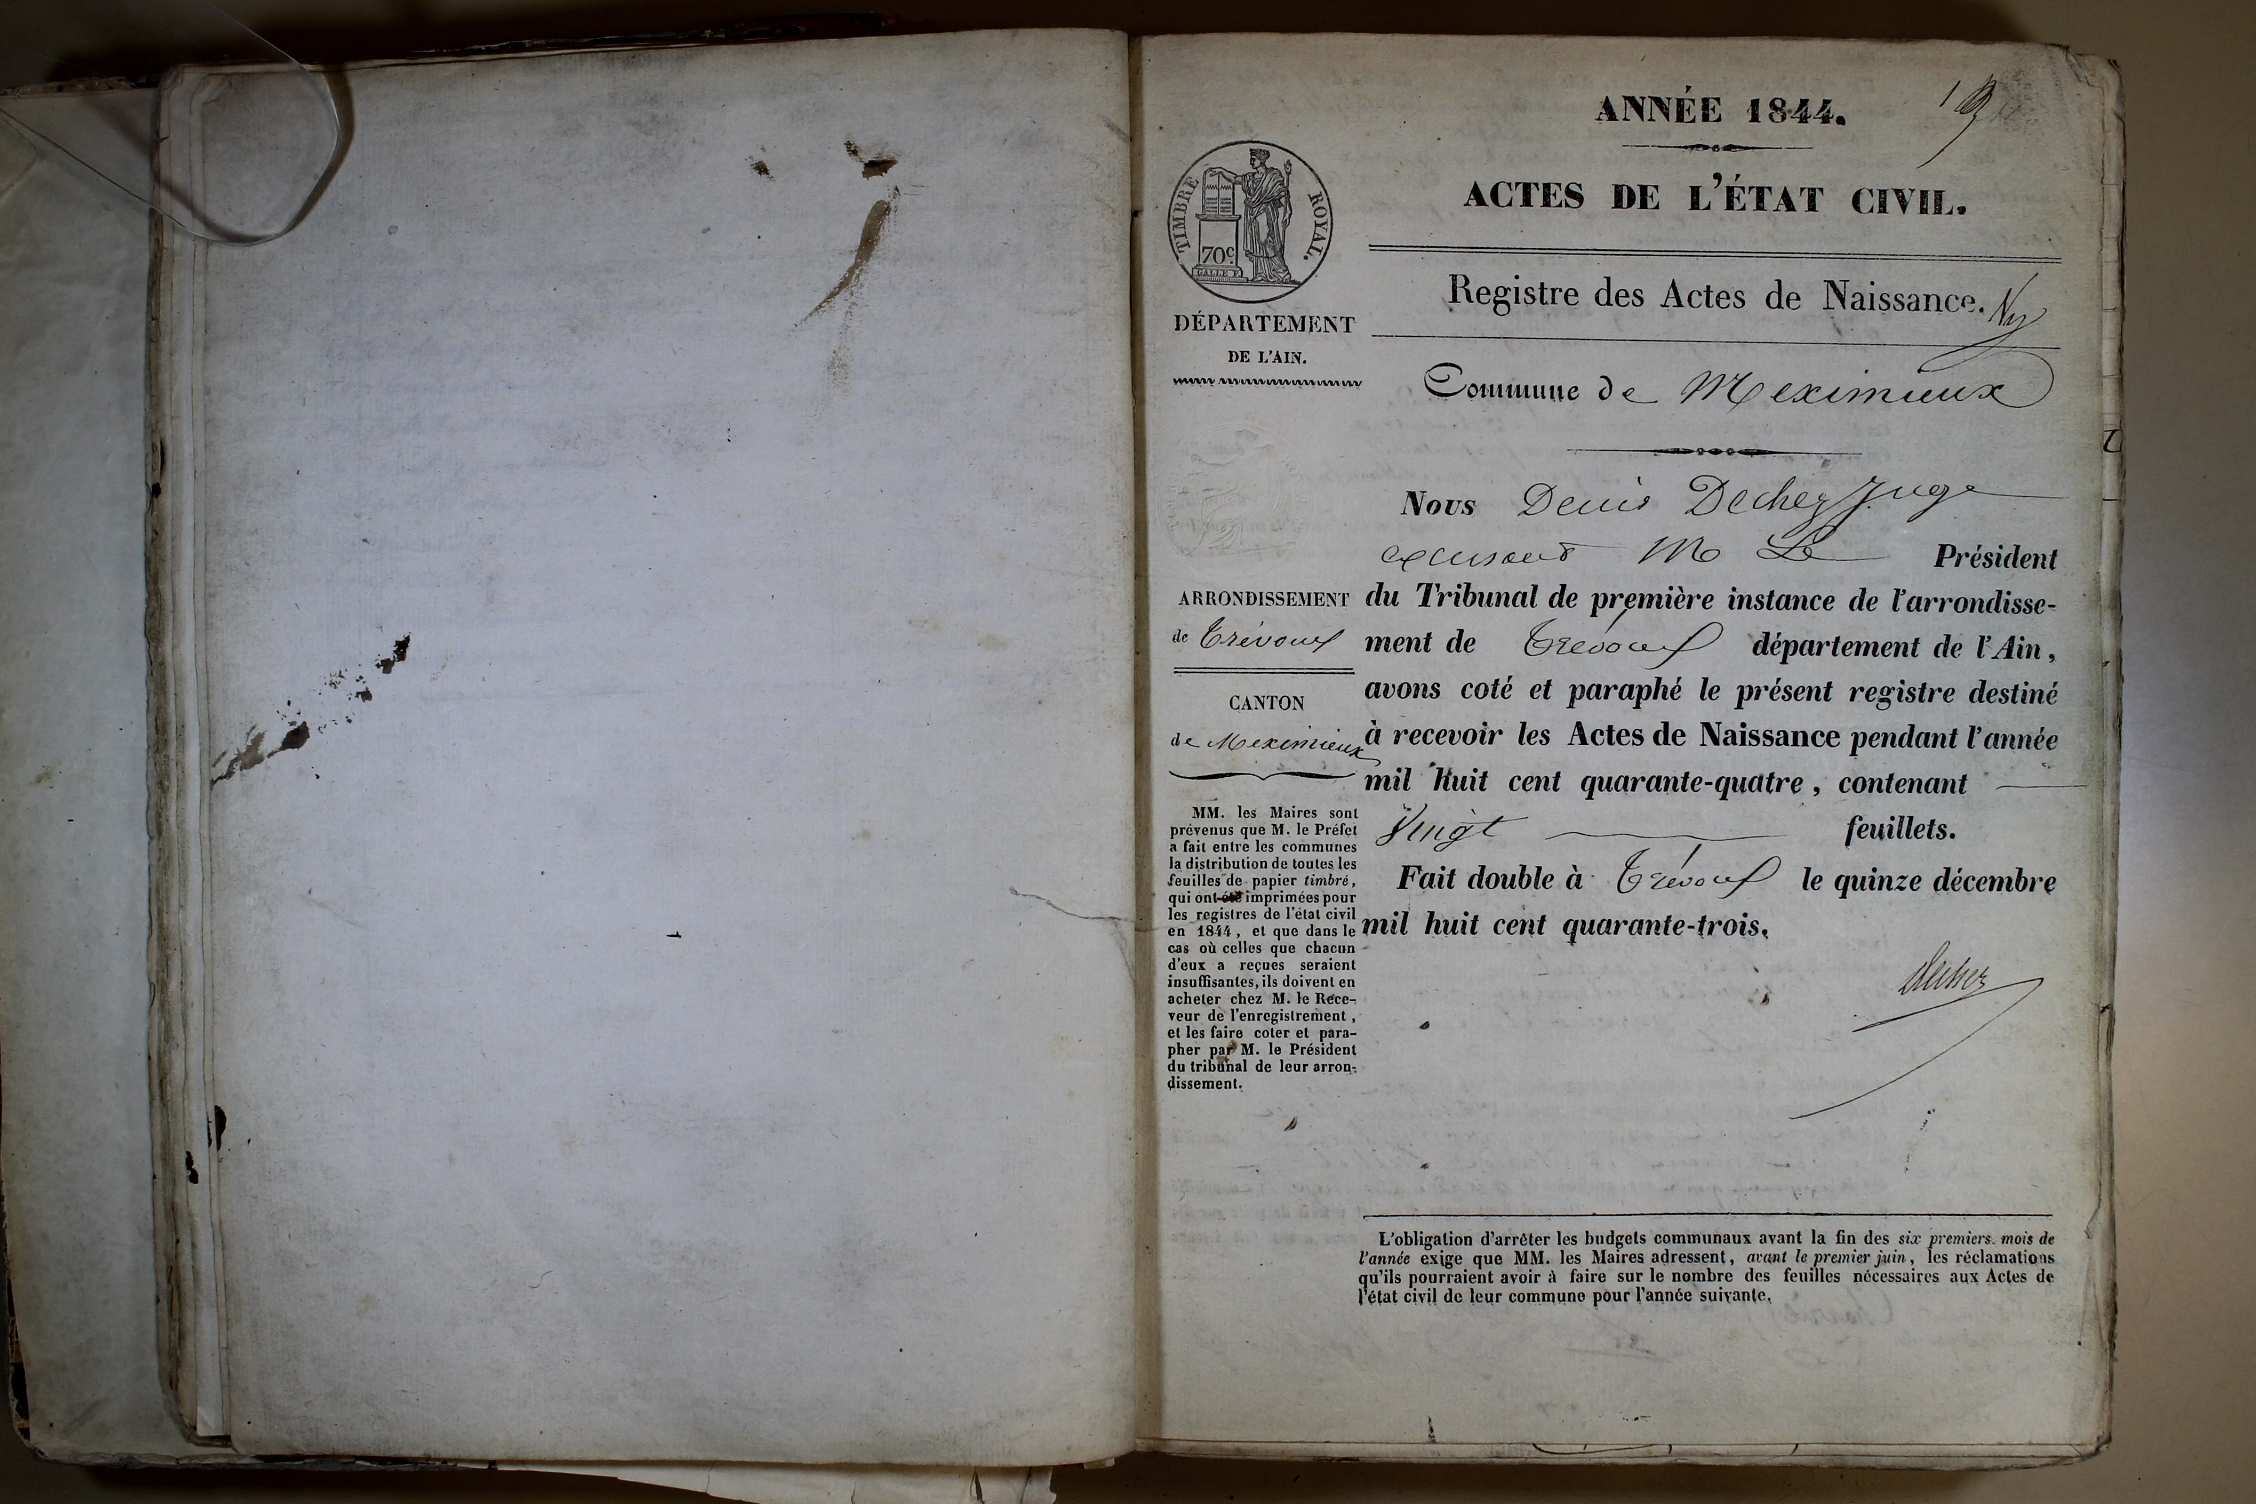 ANNÉE 1844.
1
ACTES DE L'ÉTAT CIVIL.
TIMBRE ROYAL.
70c.
Registre des Actes de Naissance.
DÉPARTEMENT
DE L'AIN.
Commune de Meximieux
Nous Denis Dechez Juge
M Le Président
ARRONDISSEMENT
de Trévoux
du Tribunal de première instance de l'arrondisse-
ment de Trévoux département de l'Ain,
avons coté et paraphé le présent registre destiné
CANTON
de Meximieux
à recevoir les Actes de Naissance pendant l'année
mil huit cent quarante-quatre, contenant
Vingt feuillets.
Fait double à Trévoux le quinze décembre
mil huit cent quarante-trois.
Dechez
MM. les Maires sont
prévenus que M. le Préfet
a fait entre les communes
la distribution de toutes les
feuilles de papier timbré,
qui ont été imprimées pour
les registres de l'état civil
en 1844, et que dans le
cas où celles que chacun
d'eux a reçues seraient
insuffisantes, ils doivent en
acheter chez M. le Rece-
veur de l'enregistrement,
et les faire coter et para-
pher par M. le Président
du tribunal de leur arron-
dissement.
L'obligation d'arrêter les budgets communaux avant la fin des six premiers mois de
l'année exige que MM. les Maires adressent, avant le premier juin, les réclamations
qu'ils pourraient avoir à faire sur le nombre des feuilles nécessaires aux Actes de
l'état civil de leur commune pour l'année suivante.